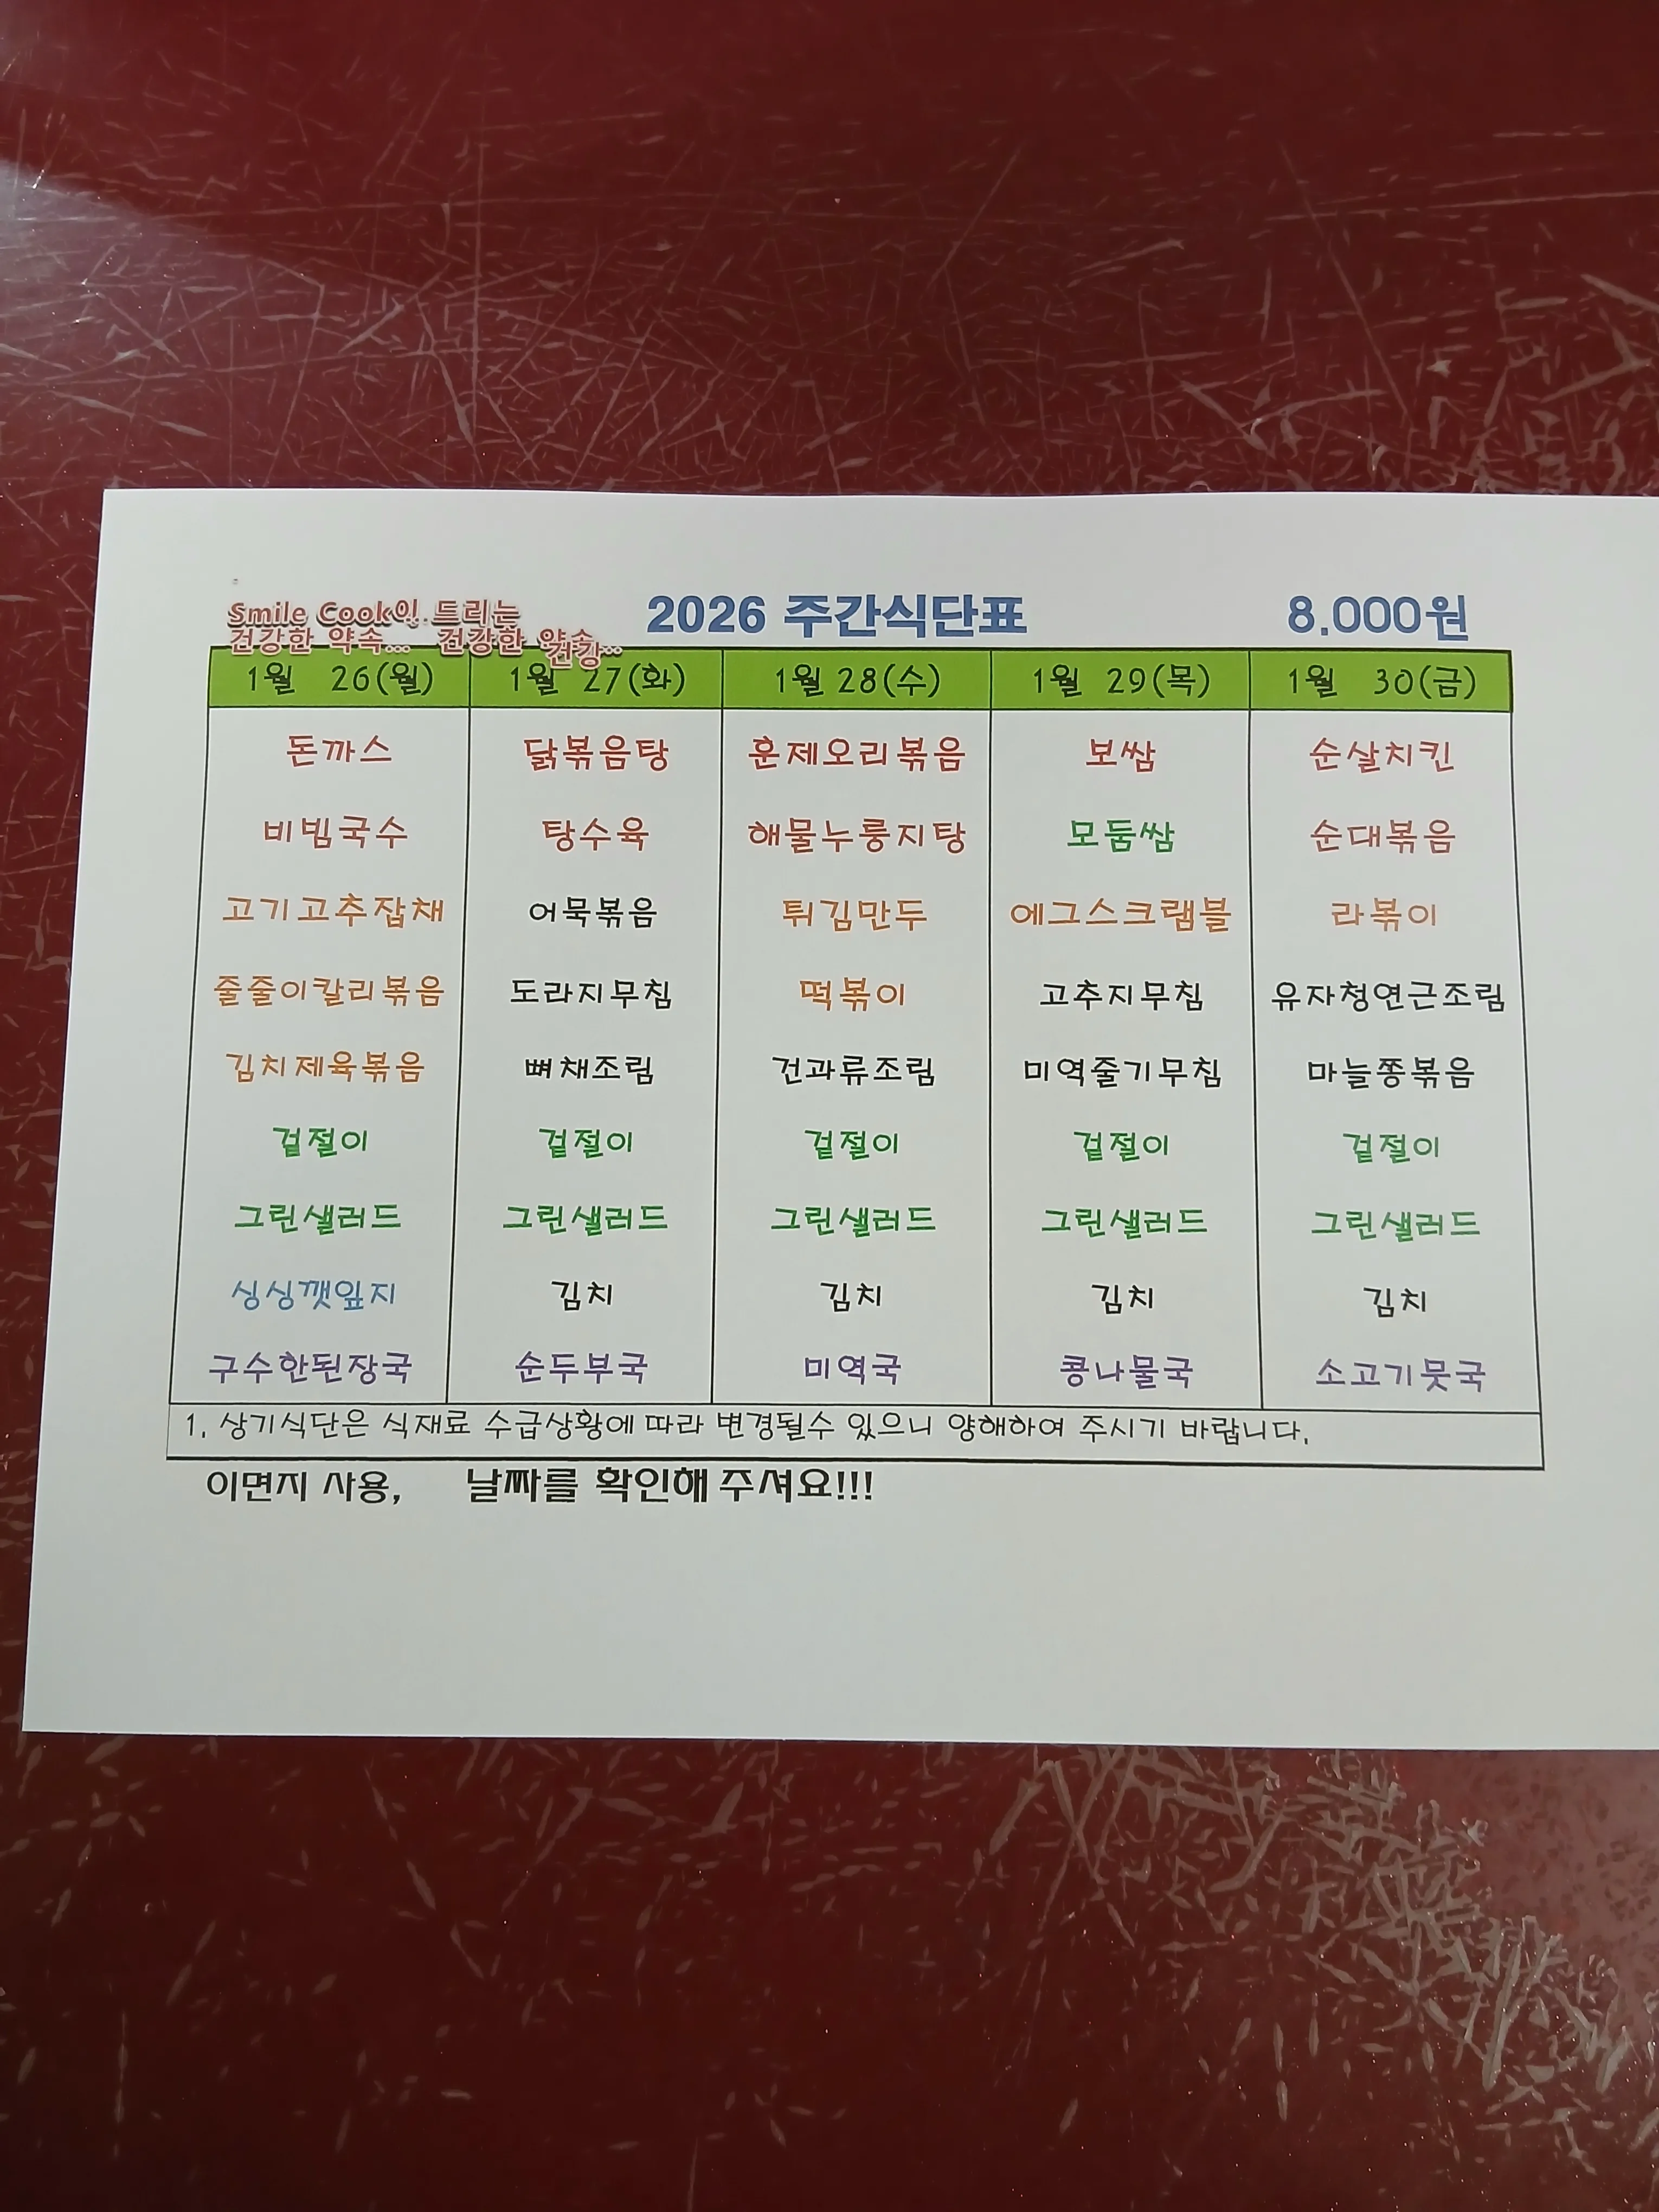 Smile Cook이 드리는
건강한 약속... 건강한 약속..
건강
2026 주간식단표 8.000원
1월 26(월) 1월 27(화) 1월 28(수) 1월 29(목) 1월 30(금)
돈까스 닭볶음탕 훈제오리볶음 보쌈 순살치킨
비빔국수 탕수육 해물누룽지탕 모둠쌈 순대볶음
고기고추잡채 어묵볶음 튀김만두 에그스크램블 라볶이
줄줄이칼리볶음 도라지무침 떡볶이 고추지무침 유자청연근조림
김치제육볶음 뼈채조림 건과류조림 미역줄기무침 마늘쫑볶음
겉절이 겉절이 겉절이 겉절이 겉절이
그린샐러드 그린샐러드 그린샐러드 그린샐러드 그린샐러드
싱싱깻잎지 김치 김치 김치 김치
구수한된장국 순두부국 미역국 콩나물국 소고기뭇국
1. 상기식단은 식재료 수급상황에 따라 변경될수 있으니 양해하여 주시기 바랍니다.
이면지 사용, 날짜를 확인해 주셔요!!!